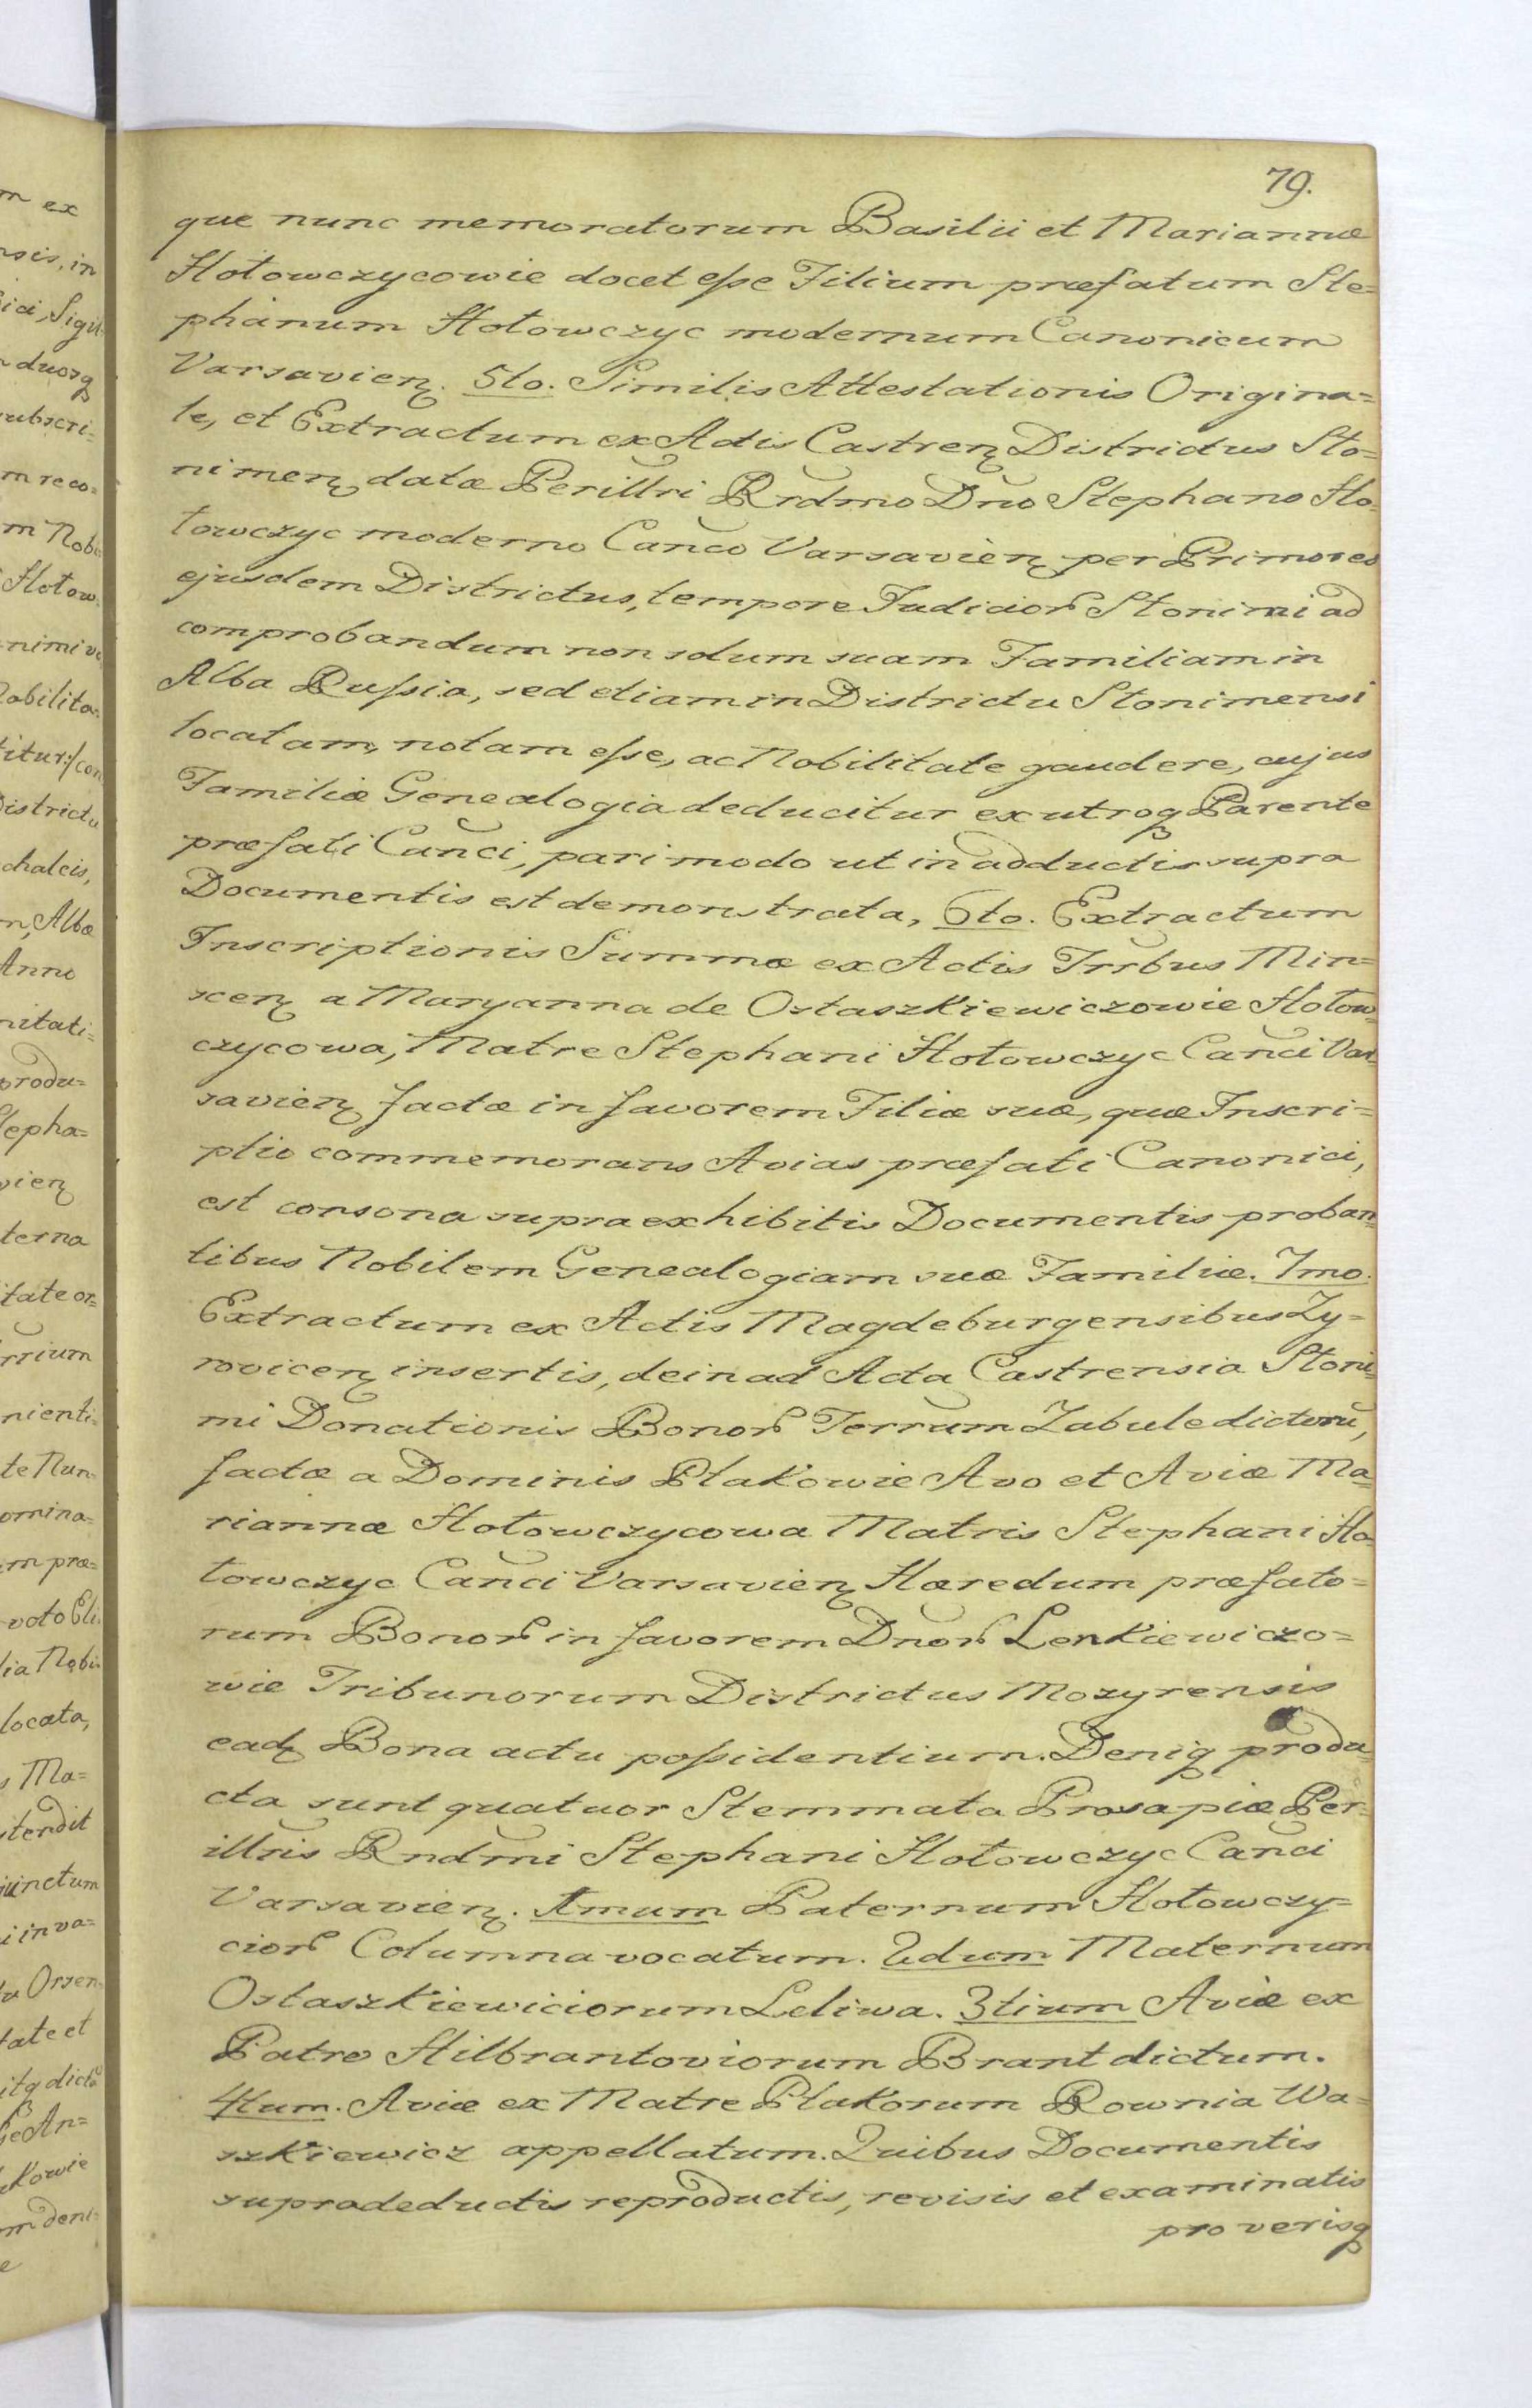 79.
que nunc memoratorum Basilii et Mariannæ
Hołowczycowie docet esse Filium præfatum Ste=
phanum Hołowczyc modernum Canonicum
Varsavien. 5to. Similis Attestationis Origina=
le, et Extractum ex Actis Castren Districtus Sło=
nimen, datæ Perillri Rrdmo Dno Stephano Ho=
łowczyc moderno Canco Varsavien per Primores
ejusdem Districtus, tempore Judicior Słonimi ad
comprobandum non solum suam Familiam in
Alba Russia, sed etiam in Districtu Słonimensi
locatam, notam esse, ac Nobilitate gaudere, cujus
Familiæ Genealogia deducitur ex utroq Parente
præfati Canci, pari modo ut in adductis supra
Documentis est demonstrata, 6to. Extractum
Inscriptionis Summæ ex Actis Trrbus Min=
scen a Maryanna de Ostaszkiewiczowie Hołow=
czycowa, Matre Stephani Hołowczyc Canci Var=
savien factæ in favorem Filiæ suæ, quæ Inscri=
ptio commemorans Avias præfati Canonici,
est consona supra exhibitis Documentis proban=
tibus Nobilem Genealogiam suæ Familiæ. 7mo.
Extractum ex Actis Magdeburgensibus Zy=
rovicen insertis, dein ad Acta Castrensia Słoni=
mi Donationis Bonor Terrum Zabule dictorū,
factæ a Dominis Płakowie Avo et Aviæ Ma=
riannæ Hołowczycowa Matris Stephani Ho=
łowczyc Canci Varsavien Hæredum præfato=
rum Bonor in favorem Dnor Lenkiewiczo=
wie Tribunorum Districtus Mozyrensis
ead Bona actu possidentium. Deniq produ=
cta sunt quatuor Stemmata Prosapiæ Per=
illris Rndmi Stephani Hołowczyc Canci
Varsavien. 1mum Paternum Hołowczy=
cior Columna vocatum. 2dum Maternum
Ostaszkiewiciorum Leliwa. 3tium Aviæ ex
Patre Hilbrantoviorum Brant dictum.
4tum. Aviæ ex Matre Płakorum Rownia Wa=
szkiewicz appellatum. Quibus Documentis
supradeductis reproductis, revisis et examinatis
pro verisq